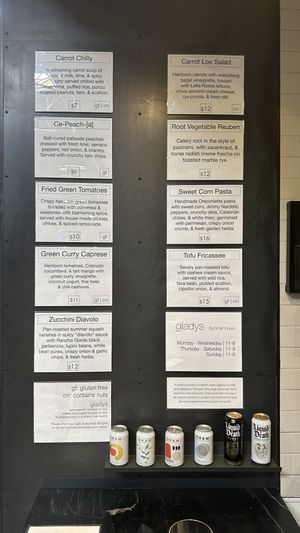 Carrot Chilly
A refreshing carrot soup of
milk, lime, & spicy
curry served chilled with
puffed rice, ponzu
roasted peanuts, taro, & scallion.
$7
gf | cn
Ce-Peach-[a]
Salt-cured palisade peaches
dressed with fresh lime, serrano
peppers, red onion, & cilantro.
Served with crunchy taro chips.
gf
Fried Green Tomatoes
Crispy green tomatoes
breaded with cornmeal &
seasoned with blackening spice,
served with house-made pickles,
chives, & spiced remoulade.
$10
gf
Green Curry Caprese
Heirloom tomatoes, Colorado
cucumbers, & tart mango with
green curry vinaigrette,
coconut yogurt, thai basil
& chili cashews.
$11
gf | cn
Zucchini Diavolo
Pan-roasted summer squash
varieties in spicy "diavolo" sauce
with Rancho Gordo black
garbanzos, lupini beans, white
bean puree, crispy onion & garlic
chips, & fresh herbs.
$12
gf: gluten free
cn: contains nuts
gladys
Carrot Lox Salad
Heirloom carrots with everything
bagel vinaigrette, tossed
with Lolla Rossa lettuce,
chive-almond cream cheese,
rye crumb, & fresh dill.
$12
cn
Root Vegetable Reuben
Celery root in the style of
pastrami, with sauerkraut, &
horse radish creme fraiche on
toasted marble rye.
$12
Sweet Corn Pasta
Handmade Orecchiette pasta
with sweet corn, Jimmy Nardello
peppers, crunchy okra, Calabrian
chilies, & white miso; garnished
with parmesan, crispy onion
crumb, & fresh garden herbs.
$16
Tofu Fricassee
Savory pan-roasted tofu
with cashew cream sauce,
served with wild rice,
fava bean, pickled scallion,
cipollini onion, & almond.
$15
gf | cn
gladys Summer Hours
Monday - Wednesday | 11-8
Thursday - Saturday | 11-9
Sunday | 11-8
Liquid
Death
Liquid
Death